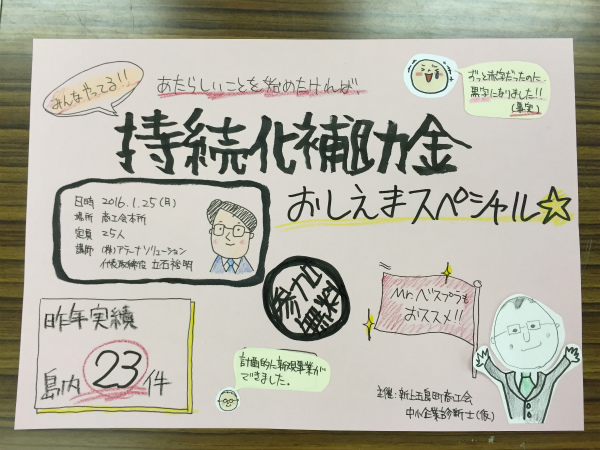 みんなやってる!!
あたらしいことを始めたければ、
ずっと赤字だったのに
黒字になりました!!
(事実)
持続化補助金
おしえまスペシャル☆
日時 2016.1.25(月)
場所 商工会本所
定員 25人
講師 (株)アテーナソリューション
代表取締役 立石裕明
参加無料
Mr.ベスプラも
おススメ!!
昨年実績
島内 23件
計画的に新規事業が
できました。
主催:新上五島町商工会
中小企業診断士(仮)